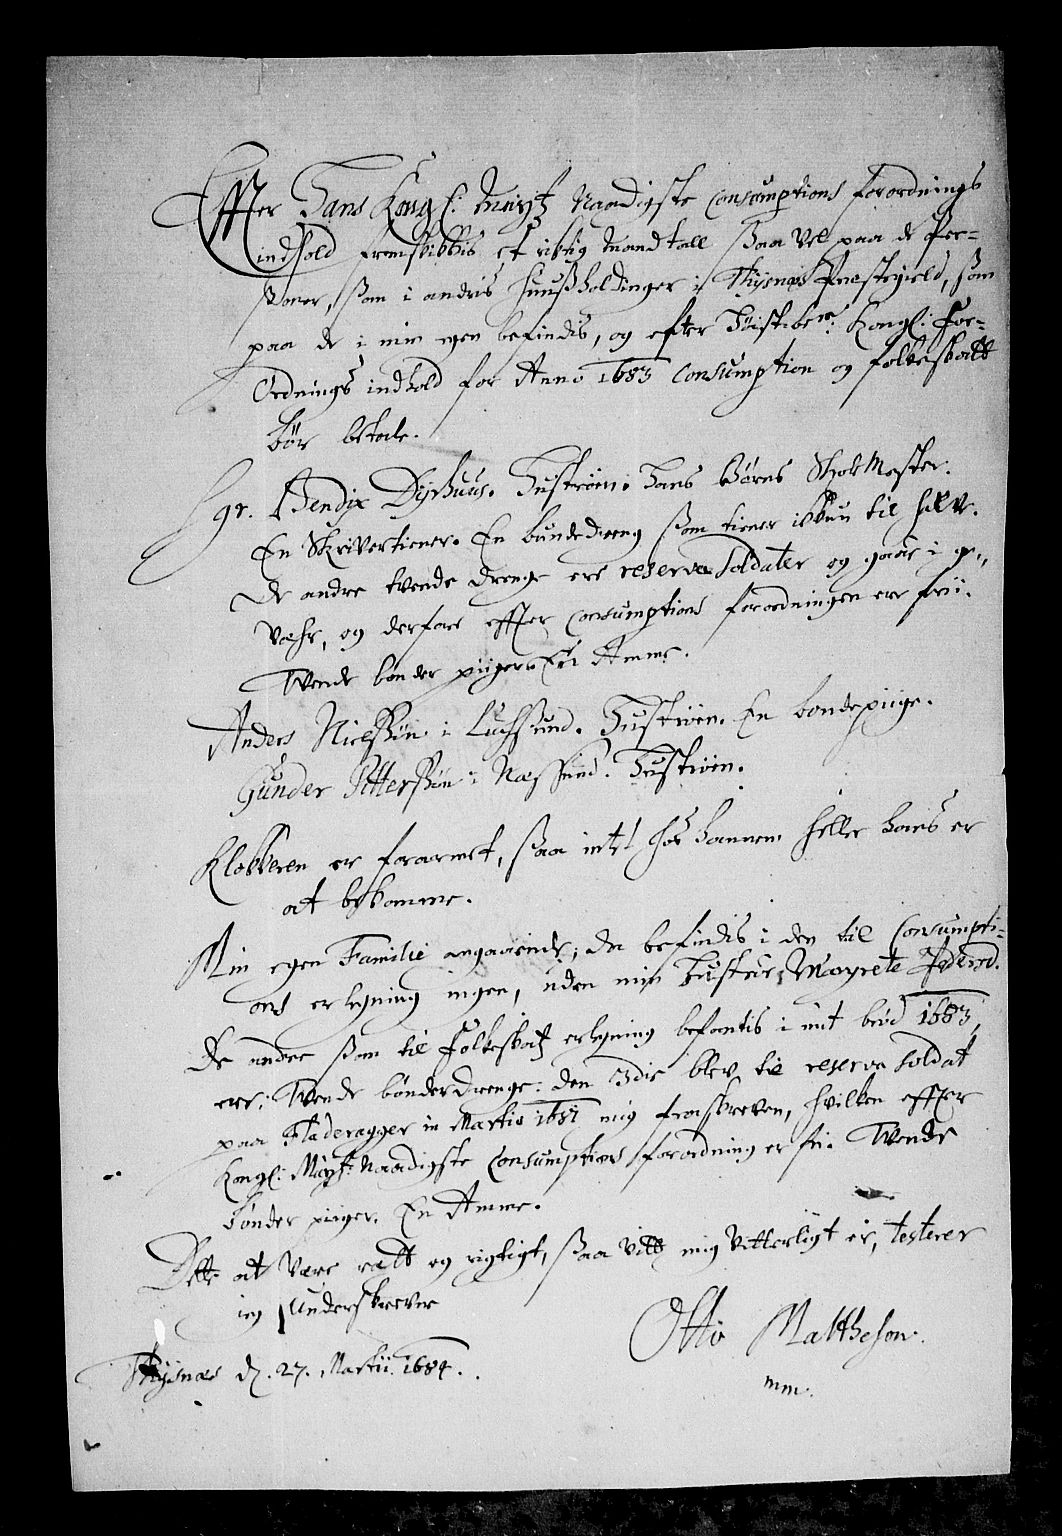 Effter Hans Kongl: Mayt: Naadigste Consumptions forordnings
indhold fremskickis et rictig mandtall, saa vel paa de Per-
soner, som i andris huusholdinger i Thysnæs Præstegield, som
paa de i min egen befindis, og efter Høistber: Kongl: For-
Ordnings indhold for Anno 1683 Consumption og folkeskatt
bør betale.
Sgr. Bendix Dyrhuus. Hustroen. Hans Børns SkoleMester.
En Skrivertiener. En bundedreng som tiener ickun til halve.
De andre tvende drenge ere reserve Soldater og gaar i ge-
væhr, og derfore effter Consumptions forordningen ere frii.
Tvende bønder piiger. En Amme.
Anders Nielssøn i Luchsund. Hustroen. En bondepiige.
Gunder Pittersøn i Næssund. Hustroen.
Klockeren er forarmet, saa intet hos hannem heller hans er
at bekomme.
Min egen Familie angaaende; da befindis i den til Consumpti-
ons erlegning ingen, uden min Hustrue, Margrete Pedersd.
De andre som til Folkeskatt erlegning befantis i mit brød 1683,
ere: Tvende bønderdrenge: den 3die blev til reserve Soldat
paa Fladeragger in Martio 1681 mig frascreven, hvilken effter
Kongl: Mayt: Naadigste Consumptions forordning er fri. Tvende
bønder piiger. En Amme.
Dette at være rætt og rigtigt, saa vitt mig vitterligt er, testerer
ieg underskrevne
Otto Mattheson
mm.
Thysnæs d. 27. Martii 1684.